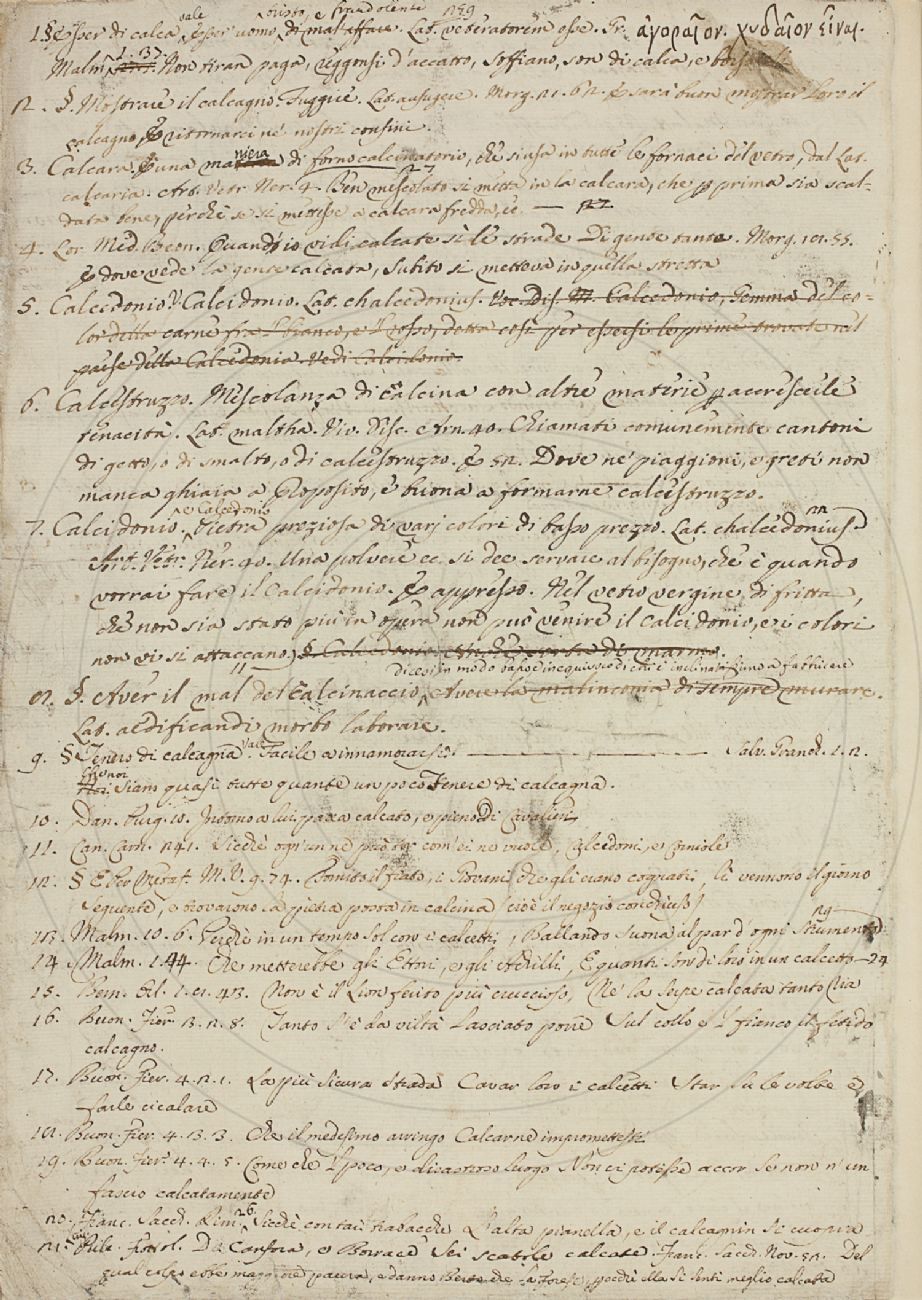 vale tristo, e fraudolente 159
1. § Esser di calca, esser uomo di mal affare. Lat. veteratorem esse. Gr. ἀγοραῖον. χυδαῖον εἶναι.
Malm. 1. 37. Non tiran paga, reggonsi d'accatto, soffiano, son di calca, e
2. §. Mostrare il calcagno. Fuggire. Lat. aufugere. Morg. E sarà buon mostrar loro il
calcagno, E ritornarci ne' nostri confini.
niera
3. Calcara. È una di forno calcinatorio, che si usa in tutte le fornaci del vetro, dal Lat.
calcaria. Art. Vetr. Ner. 4. Ben mescolato si metta in la calcara, che prima sia scal-
data bene, perchè se si mettesse a calcara fredda, ec.
4. Lor. Med. Beon. Quand'io vidi calcate sì le strade Di gente tante. Morg.
E dove vede la gente calcata, Subito si metteva in quella stretta
5. Calcedonio. V. Calcidonio. Lat. chalcedonius. Voc. Dis. Calcedonio, Gemma del co-
lor della carne fra 'l bianco, e 'l rosso, detta così per essersi le prime trovate nel
paese della Calcedonia. Vedi Calcidonio.
6. Calcestruzzo. Mescolanza di calcina con altre materie accrescerle
tenacità. Lat. maltha. Viv. Disc. Arn. 40. Chiamati comunemente cantoni
di getto, o di smalto, o di calcestruzzo. E 52. Dove ne' piaggioni, e greti non
manca ghiaia a proposito, è buona a formarne calcestruzzo.
e Calcedonio
7. Calcidonio. Pietra preziosa di varj colori di basso prezzo. Lat. chalcedonius.
Art. Vetr. Ner. 40. Una polvere ec. si dee servare al bisogno, che è quando
vorrai fare il Calcidonio. E appresso. Nel vetro vergine di fritta,
che non sia stato più in opera non può venire il calcidonio, e i colori
non vi si attaccano. § Calcidonio
dicesi in modo basso di chi è inclinatissimo a fabbricare
8. §. Aver il mal del calcinaccio, Avere la malinconia di sempre murare.
Lat. aedificandi morbo laborare.
9. § Tenero di calcagna vale Facile a innamorarsi. Salv. Granch. 1. 2.
Che noi Siam quasi tutte quante un poco Tenere di calcagna.
10. Dan. Purg. 10. Intorno a lui parea calcato, e pieno Di Cavalieri
11. Can. Carn. ogn'un ne può tor com'ei ne vuole, Calcedoni, e Corniole
12. § M. V. 9. 74. Fornito il fiato, i Giovani che gli erano cognati, li vennono il giorno
seguente, e trovarono la pietra posta in calcina (cioè il negozio concluso)
13. Malm. 10. 6. Perchè in un tempo sol coro i calcetti, Ballando suona al par d'ogni Strumento
14. Malm. 1. 44. Che metterebbe gli Ettori, e gli Achilli, E quanti son di loro in un calcetto — 24
15. Bern. Orl. Non è il Lion ferito più cruccioso, Nè la Serpe calcata tanto ria
16. Buon. Fier. Tanto s'è da viltà lasciato porre Sul collo e 'l fianco il fetido
calcagno.
17. Buon. Fier. 4. 2. 1. La più sicura strada Cavar loro i calcetti Star su le volte e
farle cicalare
18. Buon. Fier. 4. Che il medesimo arringo Calcarne impromettesti
19. Buon. Fier. 4. 4. 5. Come che 'l poco, e disastroso luogo Non ci potesse accor se non 'n un
fascio calcatamente
20. Franc. Sacch. Rim. 26. Sicchè con tai trabacche L'alta pianella, e il calcagnin si cuopra
21. Di Canfora, e Borrace Sei scatole calcate. Franc. Sacch. Nov. Del
qual colpo ebbe maggiore paura, e danno Berto che la Forese, perchè ella si sentì meglio calcata